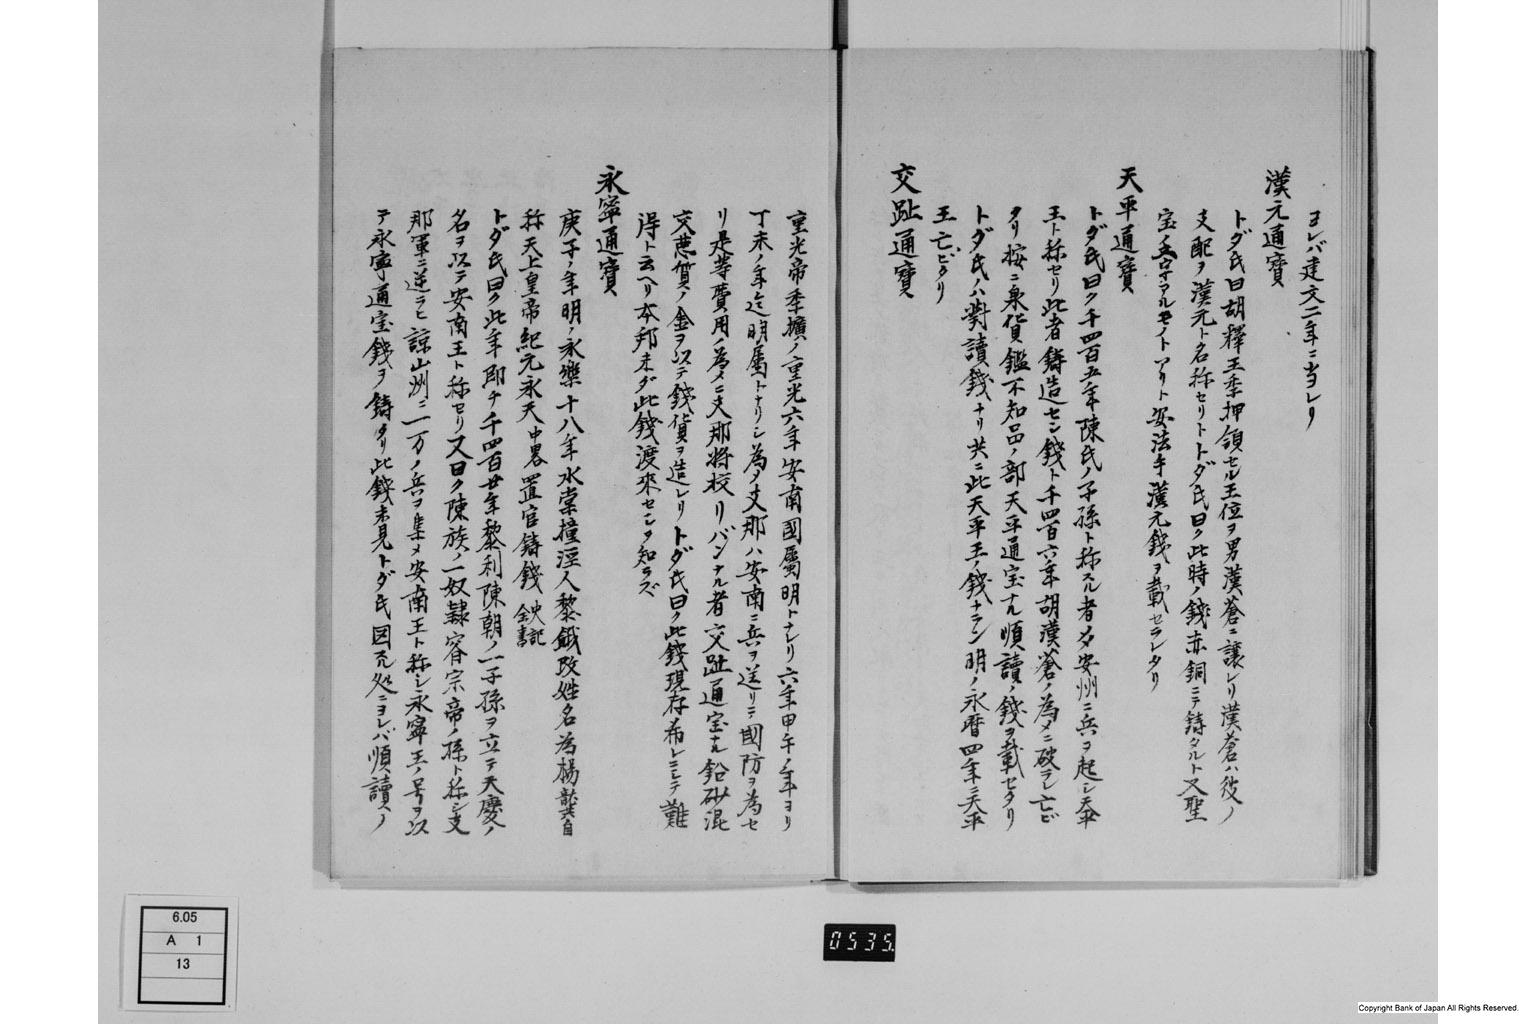 ヨレバ建文二年ニ当レリ
漢元通寳
トダ氏曰胡釋王季押領セル王位ヲ男漢蒼ニ譲レリ漢蒼ハ彼ノ
支配ヲ漢元ト名称セリトトダ氏曰ク此時ノ錢赤銅ニテ鋳タルト又聖
宝ノ二字アルモノトアリト安法手漢元錢ヲ載セラレタリ
天平通寳
トダ氏曰ク千四百五年陳氏ノ子孫ト称スル者メダ安州ニ兵ヲ起シ天平
王ト称セリ此者鋳造セシ錢ト千四百六年胡漢蒼ノ為メニ破ラレ亡ビ
タリ按ニ泉貨鑑不知品ノ部天平通宝ナル順讀ノ錢ヲ載セタリ
トダ氏ノハ對讀錢ナリ共ニ此天平王ノ錢ナラン明ノ永暦四年ニ天平
王亡ビタリ
交趾通寳
重光帝季擴ノ重光六年安南國屬明トナレリ六年甲午ノ年ヨリ
丁未ノ年迄明屬トナリシ為メ支那ハ安南ニ兵ヲ送リテ國防ヲ為セ
リ是等費用ノ為メニ支那将校リバンナル者交趾通宝ナル鉛砂混
交悪質ノ金ヲ以テ錢貨ヲ造レリトダ氏曰ク此錢現存希レニシテ難
得ト云ヘリ本邦未ダ此錢渡来セシヲ知ラズ
永寧通寳
庚子ノ年明ノ永樂十八年水棠撞涇人黎餓改姓名為楊龔自
称天上皇帝紀元永天中畧置官鋳錢 史記全書
トダ氏曰ク此年即チ千四百廿年黎利陳朝ノ一子孫ヲ立テ天慶ノ
名ヲ以テ安南王ト称セリ又曰ク陳族ノ一奴隷睿宗帝ノ孫ト称シ支
那軍ニ逆ラヒ諒山洲ニ一万ノ兵ヲ集メ安南王ト称シ永寧王ノ号ヲ以
テ永寧通宝錢ヲ鋳タリ此錢未見トダ氏図スル処ニヨレバ順讀ノ
6.05
A 1
13
0535.
Copyright Bank of Japan All Rights Reserved.